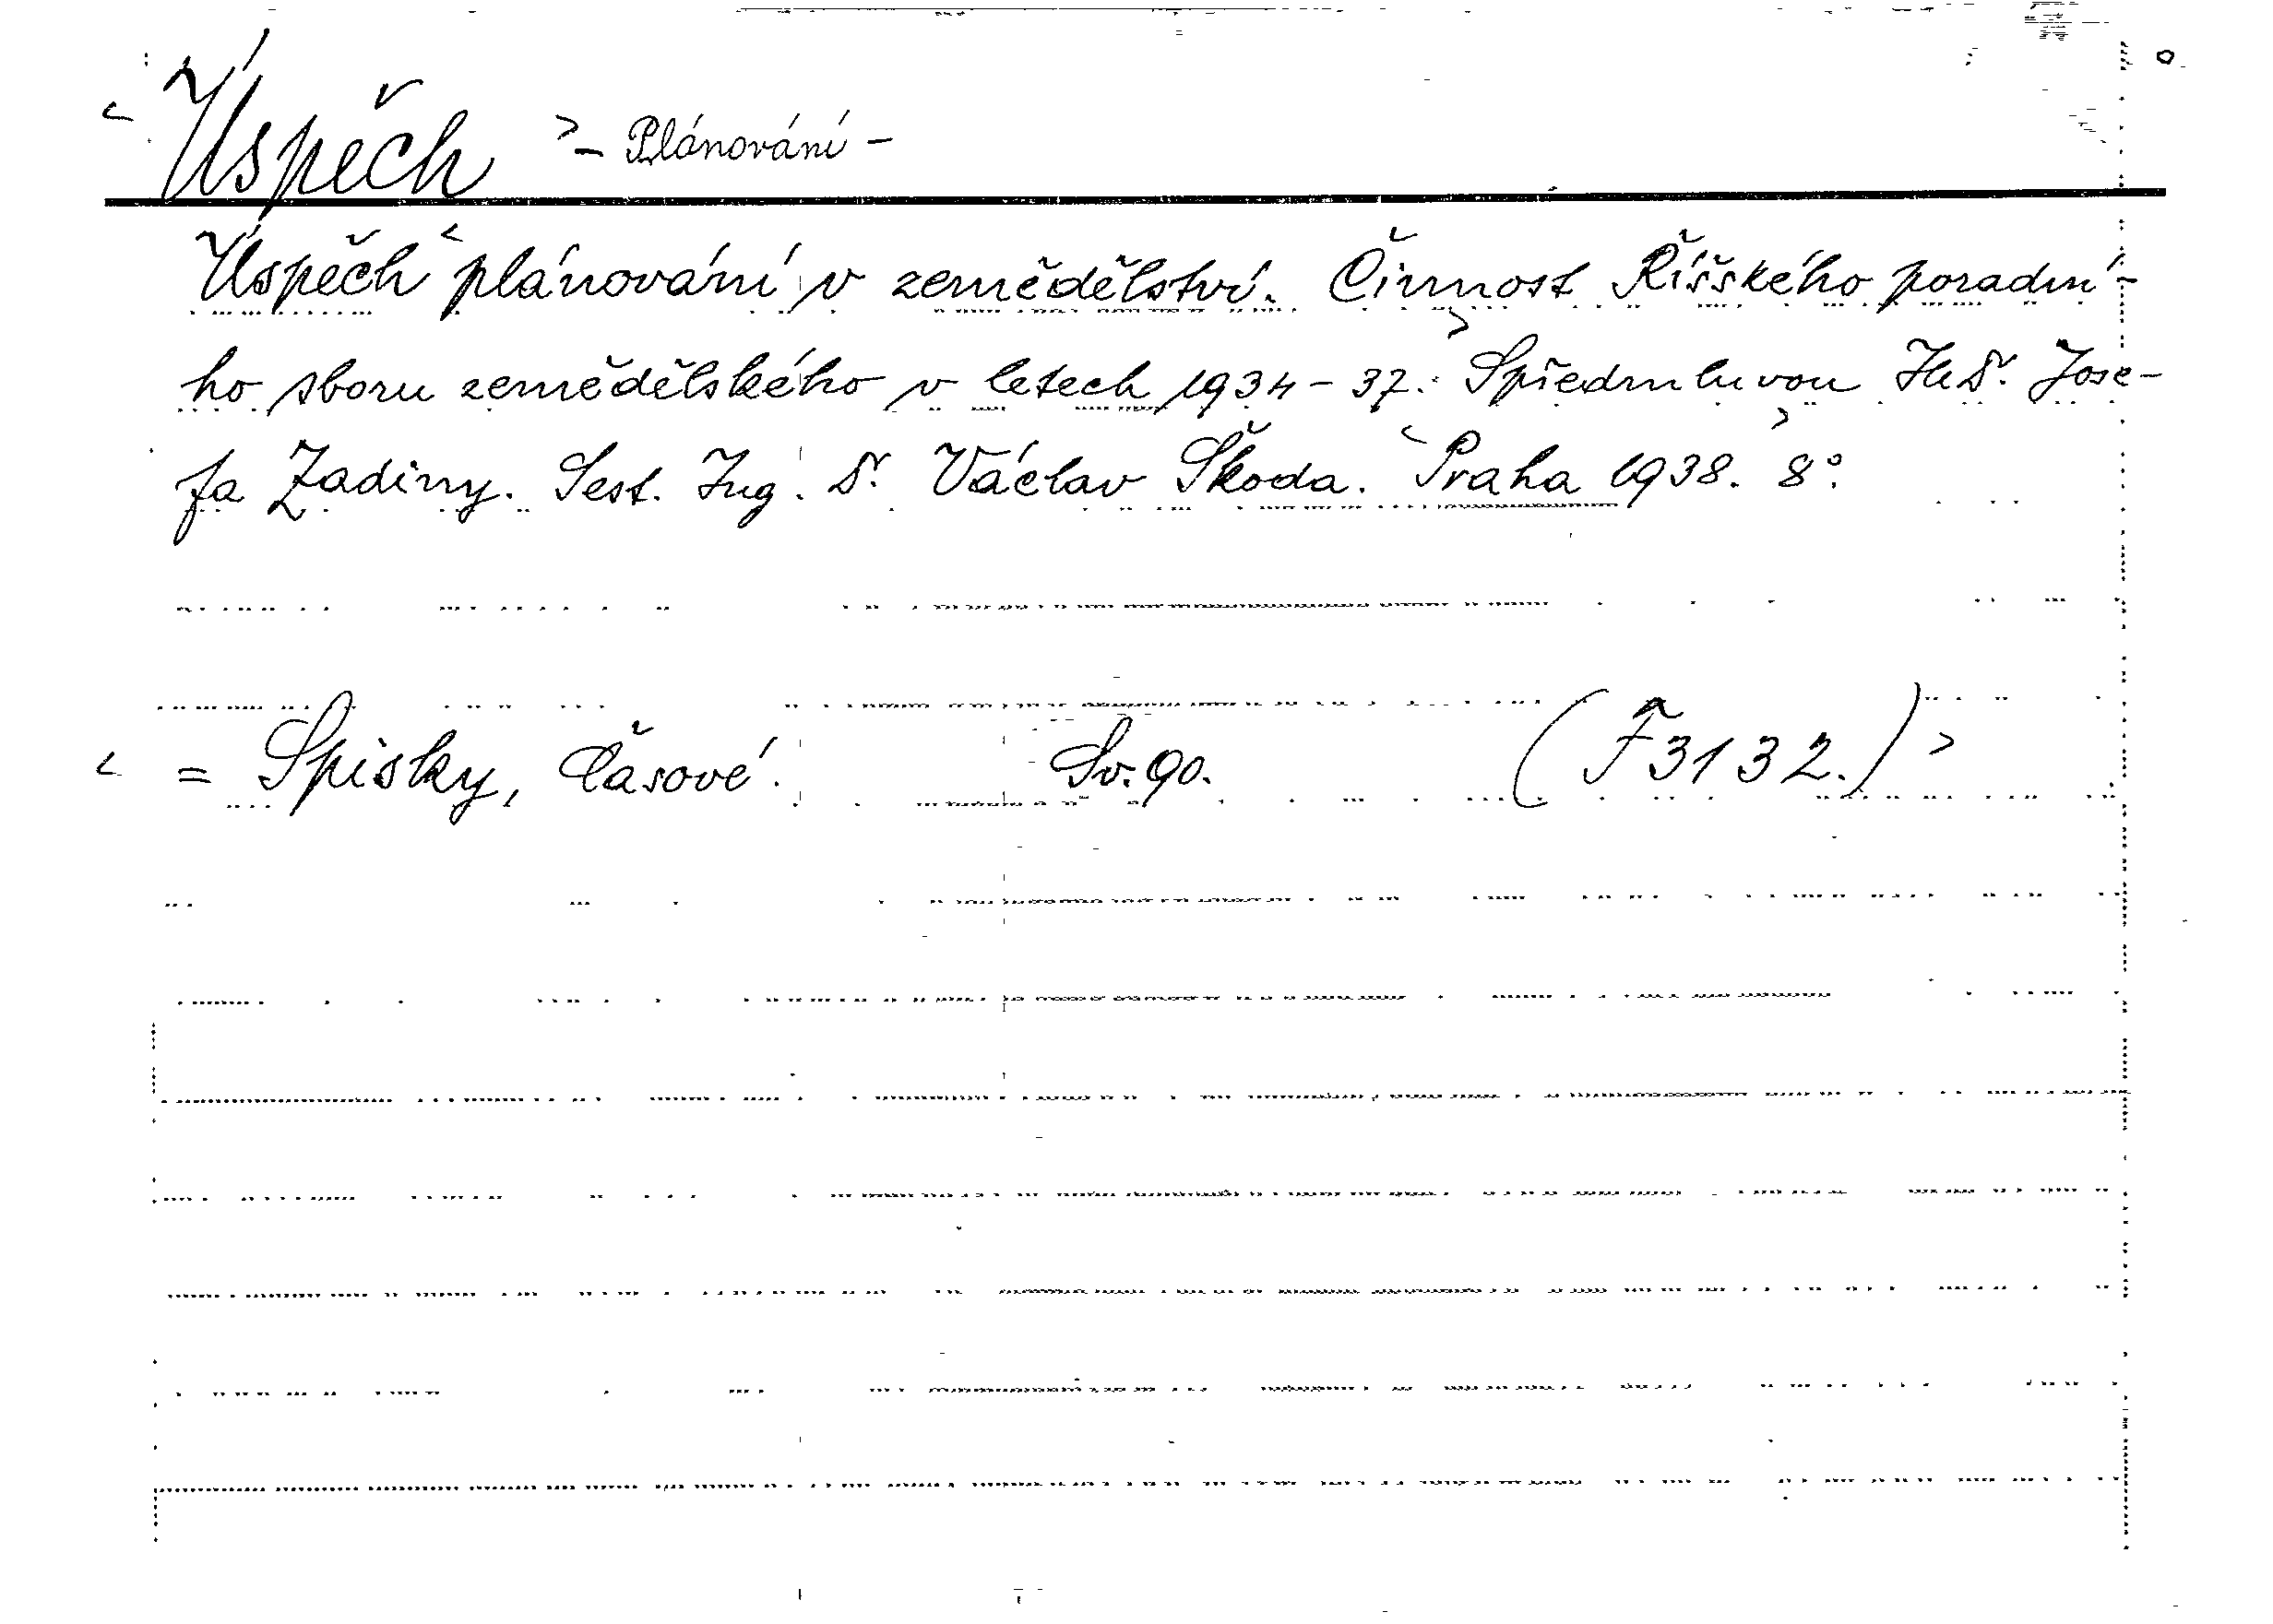 < Úspěch > – Plánování –
Úspěch < plánování v zemědělství. Činnost Říšského poradní-
ho sboru zemědělského v letech 1934 – 37. > S předmluvou Dr. Jose-
fa Zadiny. Sest. Ing. Dr. Václav Škoda. < Praha 1938. 8°. >
< = Spisky, Časové. Sv. 90. (F 3132.) >